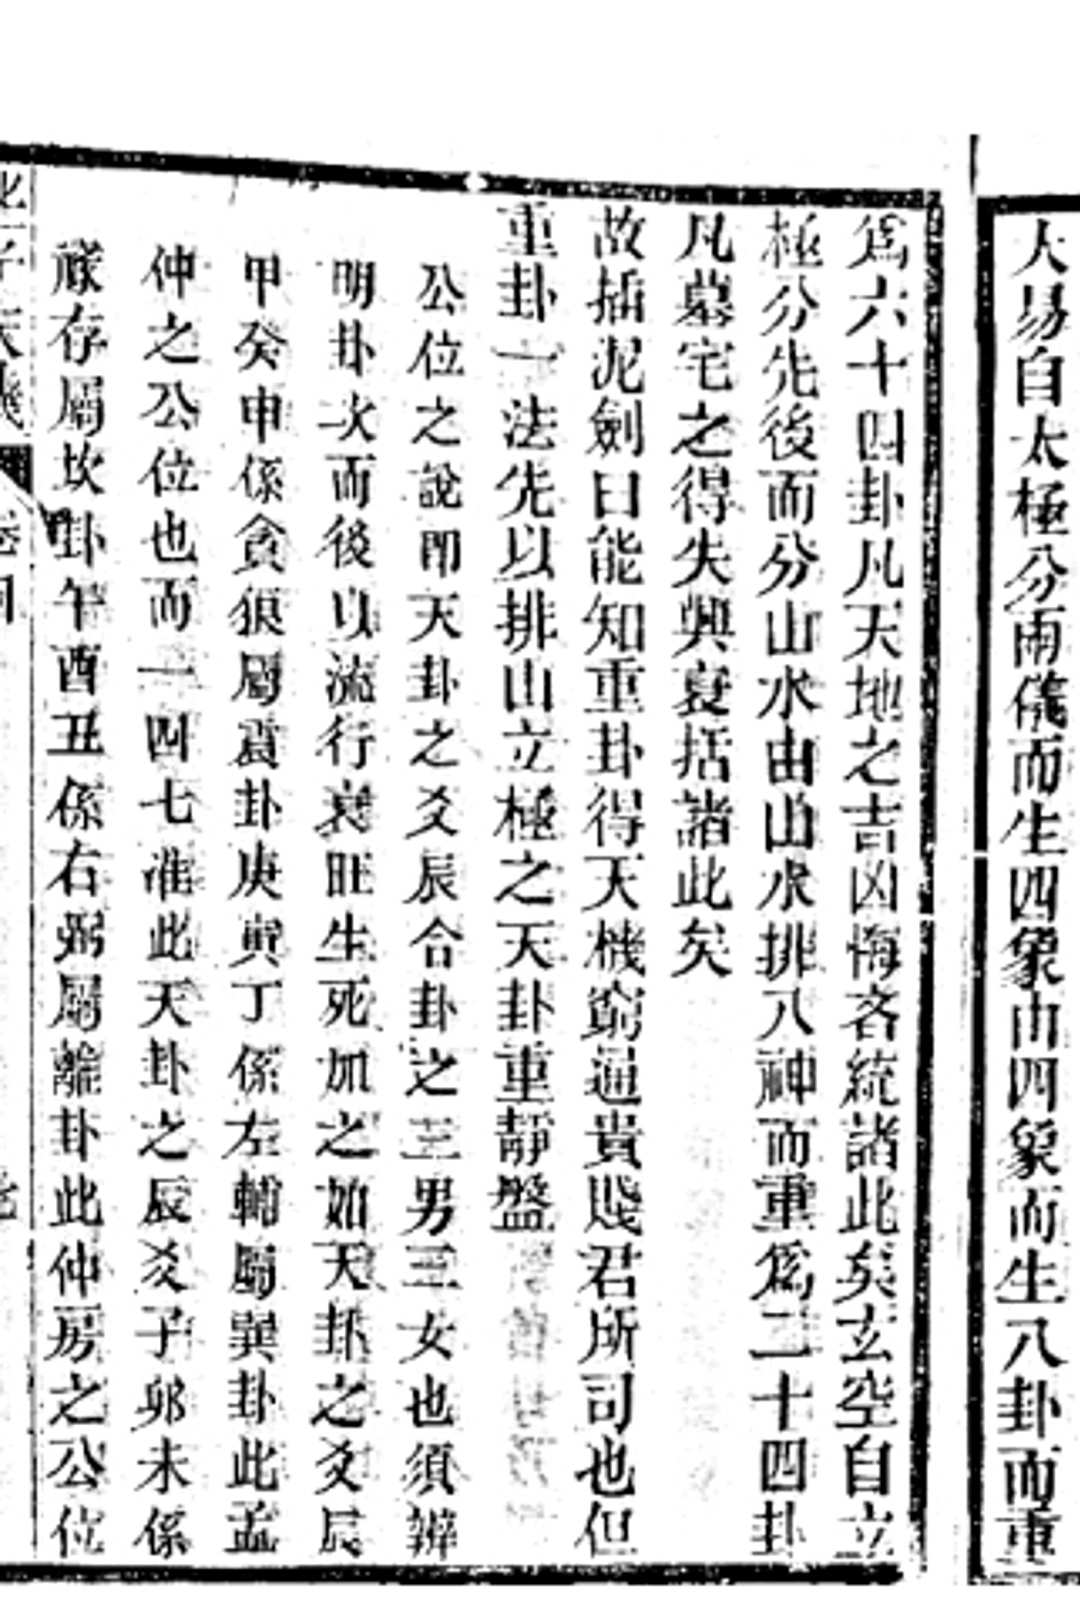 大易自太極分兩儀而生四象由四象而生八卦而重
爲六十四卦凡天地之吉凶悔吝統諸此矣玄空自立
極分先後而分山水由山水排八神而重爲二十四卦
凡墓宅之得失興衰括諸此矣
故插泥劍曰能知重卦得天機窮通貴賤君所司也但
重卦一法先以排山立極之天卦重靜盤
公位之說即天卦之爻辰合卦之三男三女也須辨
明卦次而後以流行衰旺生死加之如天卦之爻辰
甲癸申係貪狼屬震卦庚寅丁係左輔屬巽卦此孟
仲之公位也而一四七准此天卦之辰爻子卯未係
祿存屬坎卦午酉丑係右弼屬離卦此仲房之公位